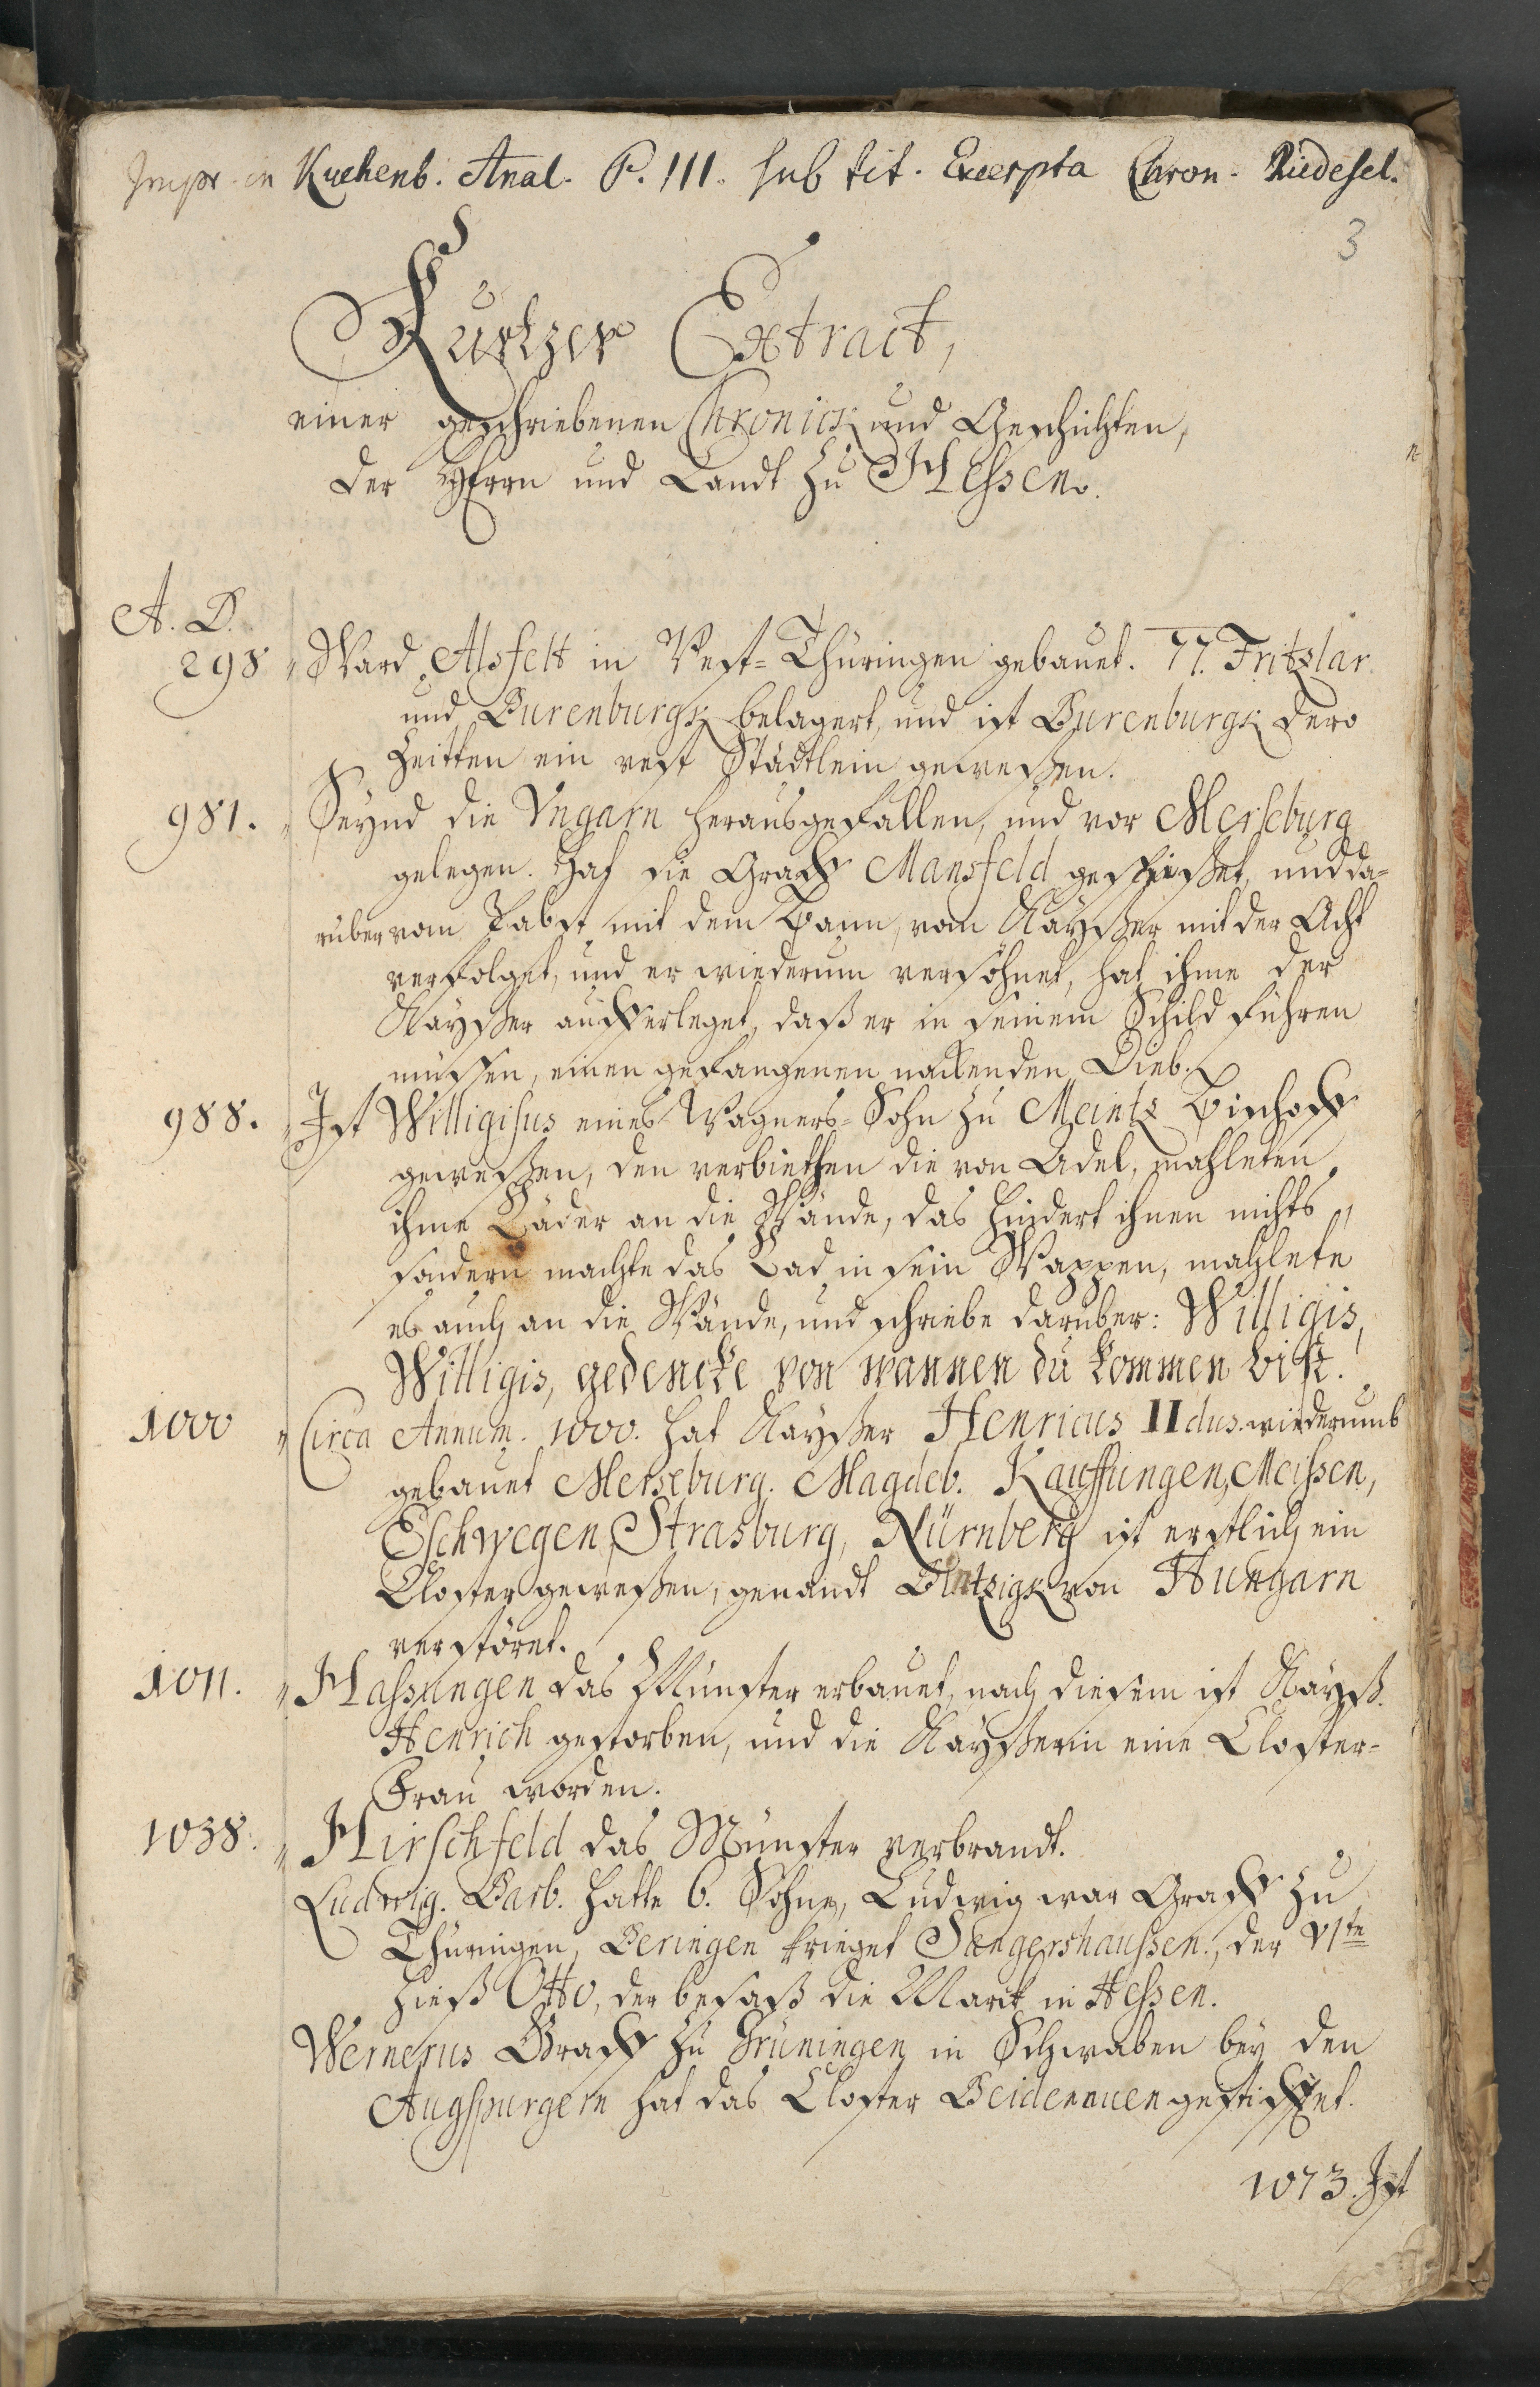 Impr. in Kuchenb. Anal. P. III. sub tit. Excerpta Chron. Riedesel.
3
Kurtzer Extract,
einer geschriebenen Chronick und Geschichten,
der Herrn und Landt zu Hessen.
A. D.
298 Ward Alsfelt in West-Thüringen gebauet. 77. Fritzlar
und Burenburgk belagert, und ist Burenburgk dero
Zeitten ein vest Städtlein geweßen.
981. Seynd die Vngarn herausgefallen, und vor Merseburg
gelegen. Hat die Graff Mansfeld und da-
rüber vom Pabst mit dem Bann, vom Kayßer mit der Acht
verfolget, und er wiederum versöhnet, hat ihme der
Kayßer aufferleget, daß er in seinem Schild führen
müssen, einen gefangenen nackenden Dieb.
988. Ist Willigisus eines Wagners-Sohn zu Meintz Bischoff
geweßen, den verbiethen die von Adel, mahleten
ihme Räder an die Wände, das hindert ihnen nichts,
sondern machte das Rad in sein Wappen, mahlete
es auch an die Wände, und schriebe darüber: Willigis,
Willigis, gedencke von wannen du kommen bist.
1000 Circa Annum. 1000. hat Kayßer Henricus IIdus. wiederumb
gebauet Merseburg. Magdeb. Kauffungen, Meissen,
Eschwegen, Strasburg, Nürnberg ist erstlich ein
Closter geweßen, genandt von Hungarn
verstöret.
1011. Hassungen das Münster erbauet, nach diesem ist Kayß.
Henrich gestorben, und die Kayßerin eine Closter-
Frau worden.
1038. Hirschfeld das Münster verbrandt.
Ludwig. Barb. hatte 6. Söhne, Ludwig war Graff zu
Thüringen, Beringen krieget Sangershaussen., der VIte
hieß Otto, der besaß die Marck in Hessen.
Wernerus Graff zu Grüningen in Schwaben bey den
Augspurgern hat das Closter Beidenauen gestifftet.
1073. Ist